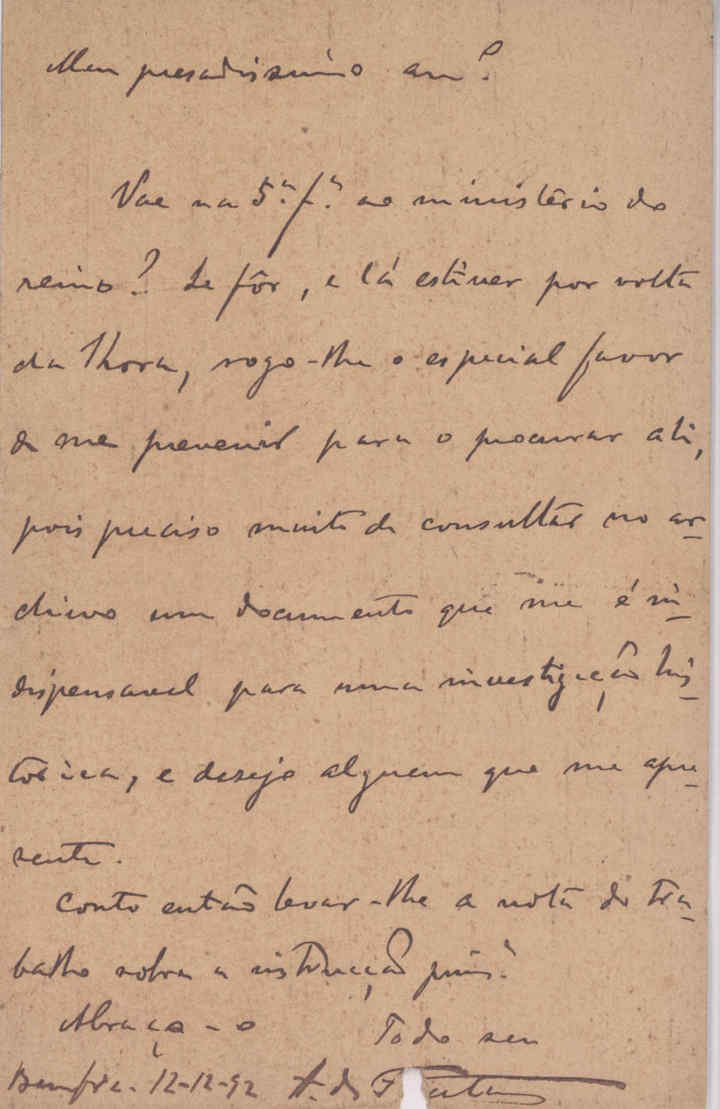 Meu presadissimo am.º
Vae na 5.ª f.ª ao ministério do
reino? Se fôr, e lá estiver por volta
da 1 hora, rogo-lhe o especial favor
de me prevenir para o procurar ali,
pois preciso muito de consultar no ar-
chivo um documento que me é in-
dispensavel para uma investigação his-
tórica, e desejo alguem que me apre-
sente.
Conto então levar-lhe a nota do tra-
balho sobre a instrucção prim.ª
Abraça-o Todo seu
Bemfica. 12-12-92 A. da